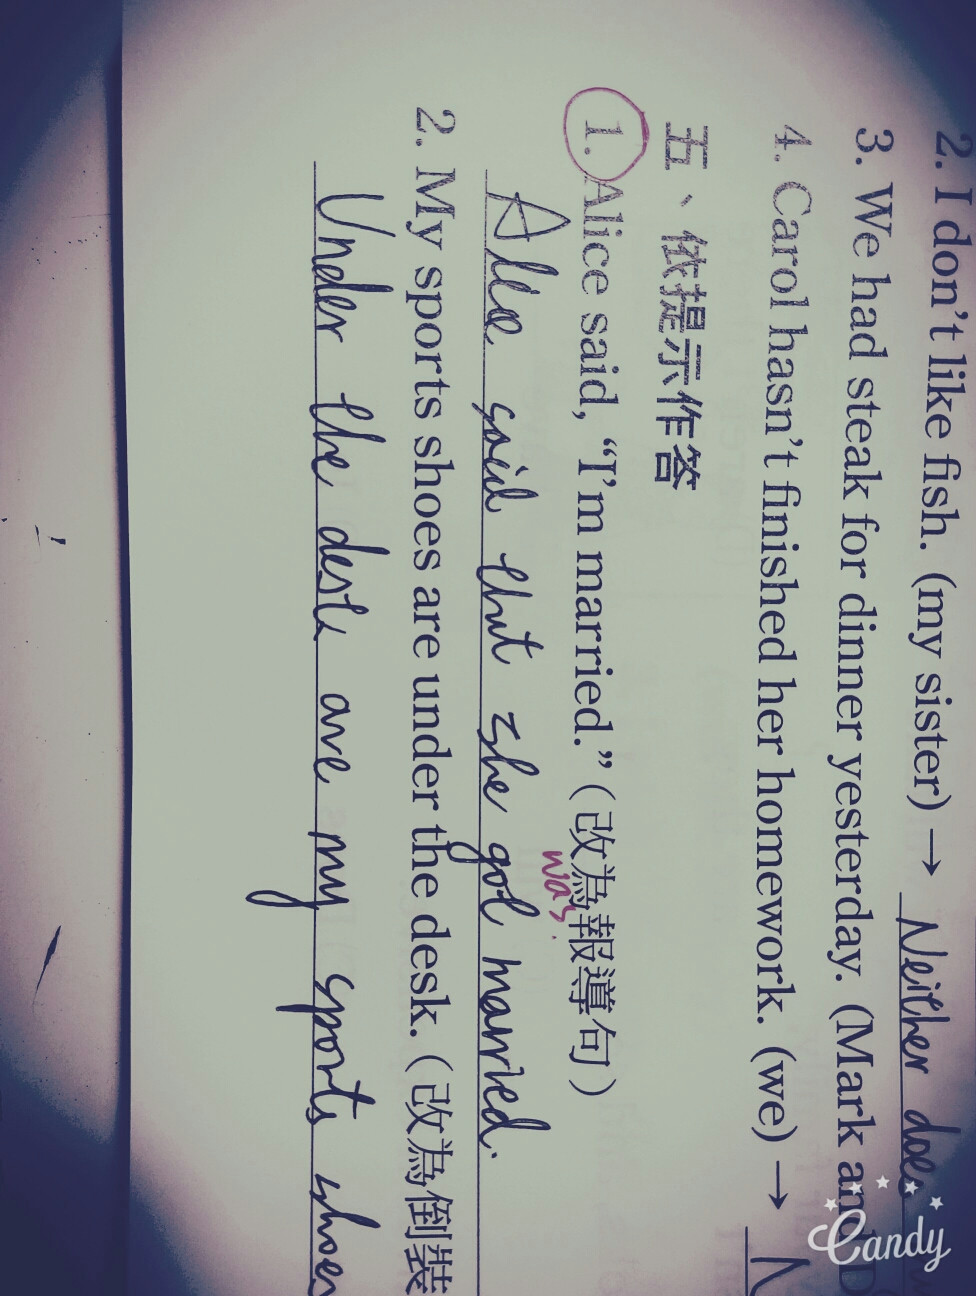 2. I don't like fish. (my sister) → Neither does
3. We had steak for dinner yesterday. (Mark and D
4. Carol hasn't finished her homework. (we) → N
五、依提示作答
1. Alice said, “I'm married.” (改為報導句)
was
Alice said that she got married.
2. My sports shoes are under the desk. (改為倒裝
Under the desk are my sports shoes
Candy